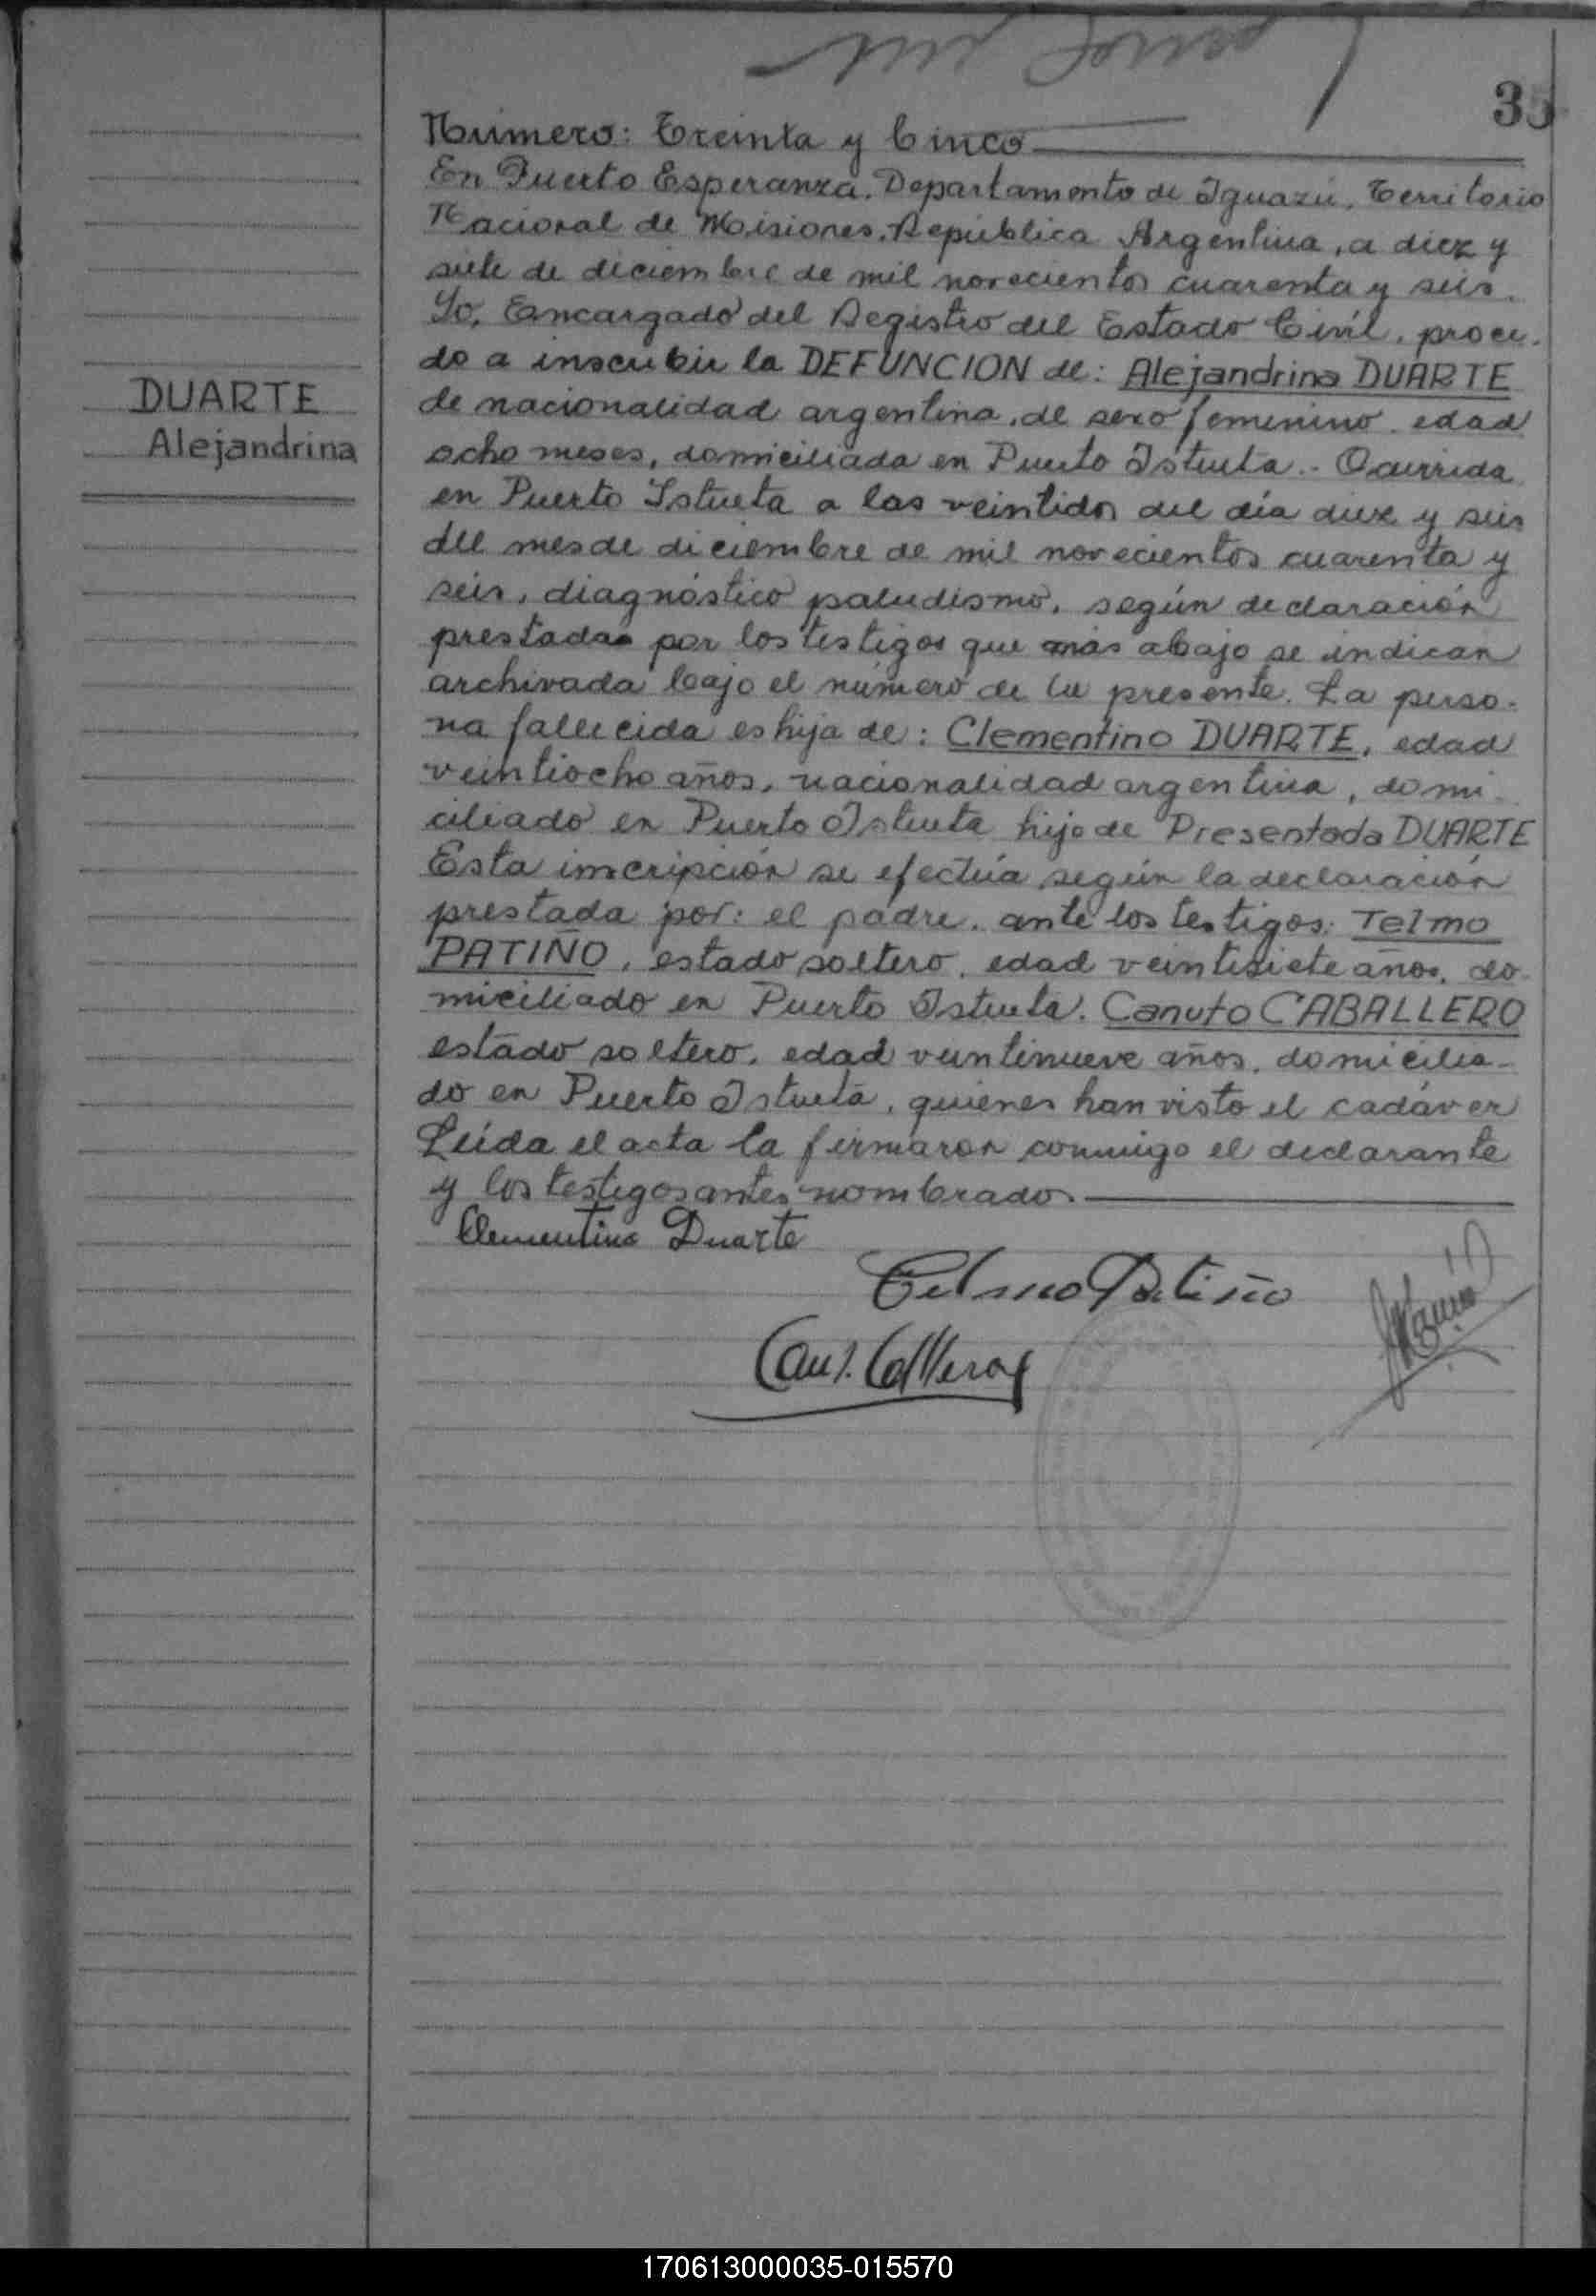 35
Número: Treinta y Cinco
En Puerto Esperanza, Departamento de Iguazú, Territorio
Nacional de Misiones, República Argentina, a diez y
siete de diciembre de mil novecientos cuarenta y seis.
Yo, Encargado del Registro del Estado Civil, proce-
do a inscribir la DEFUNCION de: Alejandrina DUARTE
DUARTE
Alejandrina
de nacionalidad argentina, de sexo femenino, edad
ocho meses, domiciliada en Puerto Istueta.- Ocurrida
en Puerto Istueta a las veintidos del día diez y seis
del mes de diciembre de mil novecientos cuarenta y
seis, diagnóstico paludismo, según declaración
prestada por los testigos que más abajo se indican
archivada bajo el número de la presente. La perso-
na fallecida es hija de: Clementino DUARTE, edad
veintiocho años, nacionalidad argentina, domi-
ciliado en Puerto Istueta hijo de Presentada DUARTE
Esta inscripción se efectúa según la declaración
prestada por: el padre, ante los testigos: Telmo
PATIÑO, estado soltero, edad veintisiete años, do-
miciliado en Puerto Istueta. Canuto CABALLERO
estado soltero, edad veintinueve años, domicilia-
do en Puerto Istueta, quienes han visto el cadáver
Leída el acta la firmaron conmigo el declarante
y los testigos antes nombrados.
Clementino Duarte
Telmo Patiño
170613000035-015570